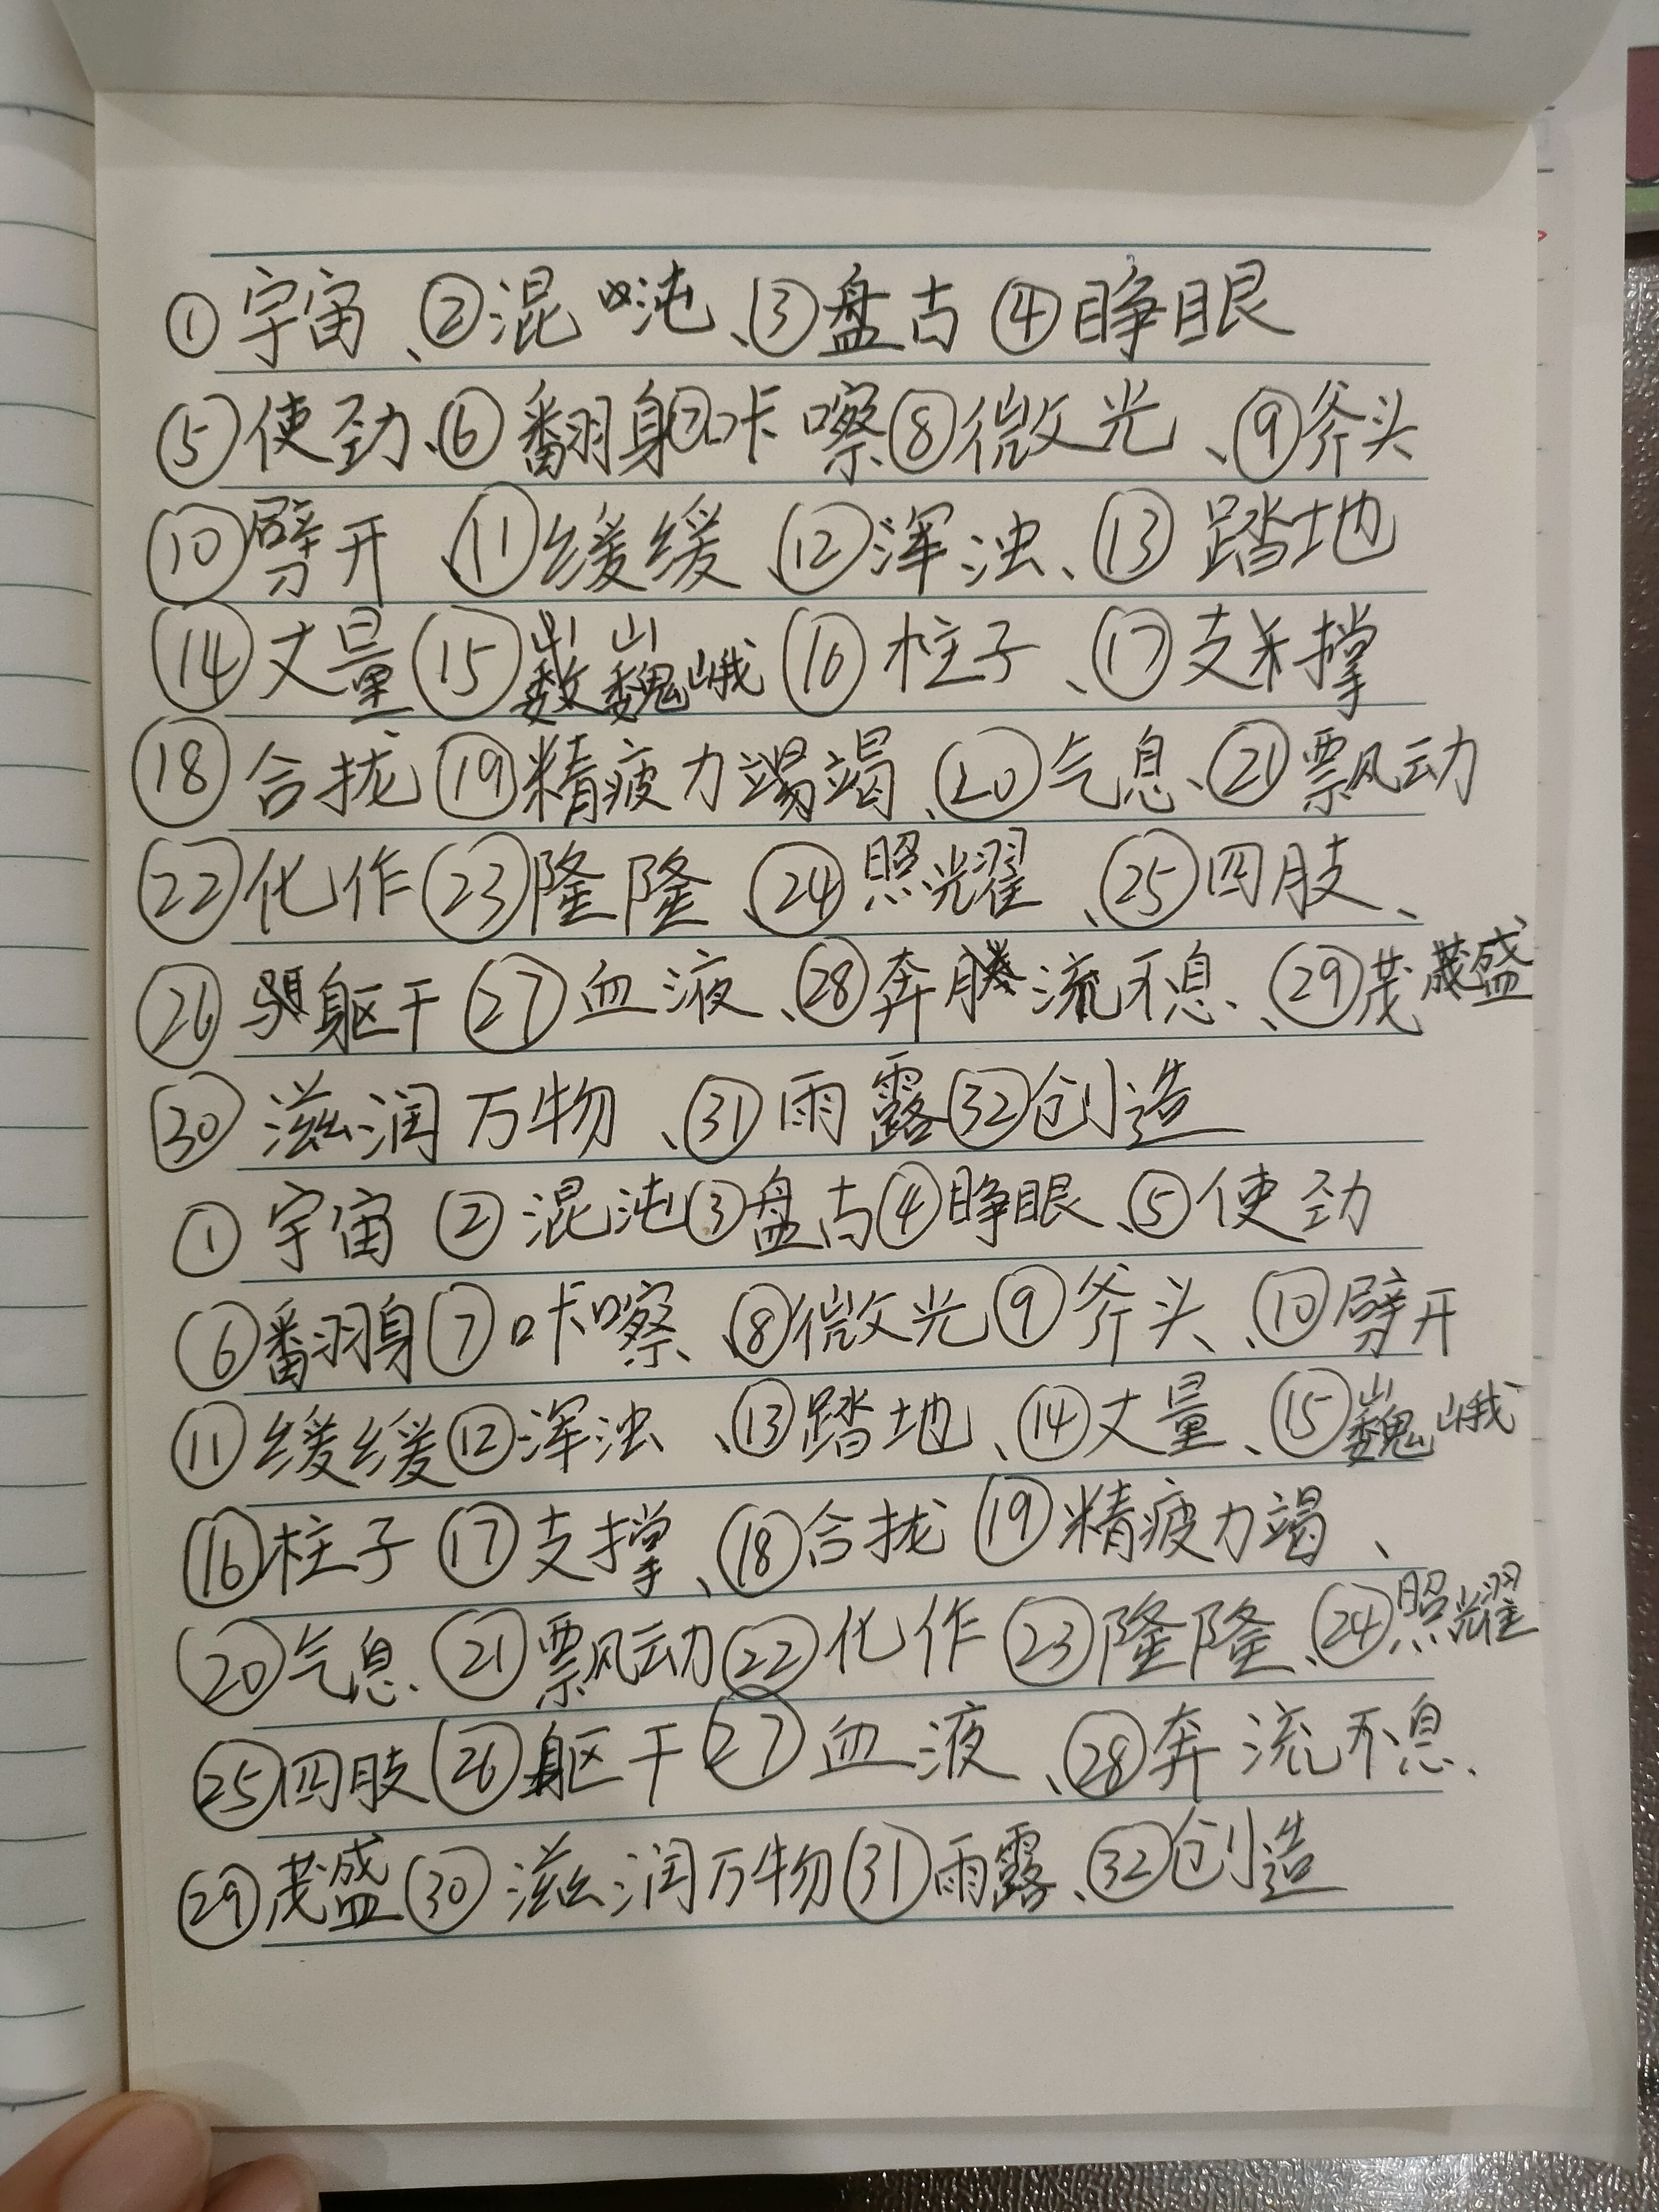 ①宇宙、②混沌、③盘古④睁眼
⑤使劲、⑥翻身⑦咔嚓⑧微光、⑨斧头
⑩劈开、⑪缓缓、⑫浑浊、⑬踏地
⑭丈量⑮巍峨⑯柱子、⑰支撑
⑱合拢⑲精疲力竭、⑳气息、㉑飘动
㉒化作㉓隆隆、㉔照耀、㉕四肢、
㉖躯干㉗血液、㉘奔流不息、㉙茂盛
㉚滋润万物、㉛雨露㉜创造
①宇宙②混沌③盘古④睁眼、⑤使劲
⑥翻身⑦咔嚓、⑧微光⑨斧头、⑩劈开
⑪缓缓⑫浑浊、⑬踏地、⑭丈量、⑮巍峨
⑯柱子⑰支撑、⑱合拢⑲精疲力竭、
⑳气息、㉑飘动㉒化作㉓隆隆、㉔照耀
㉕四肢㉖躯干㉗血液、㉘奔流不息、
㉙茂盛㉚滋润万物㉛雨露、㉜创造